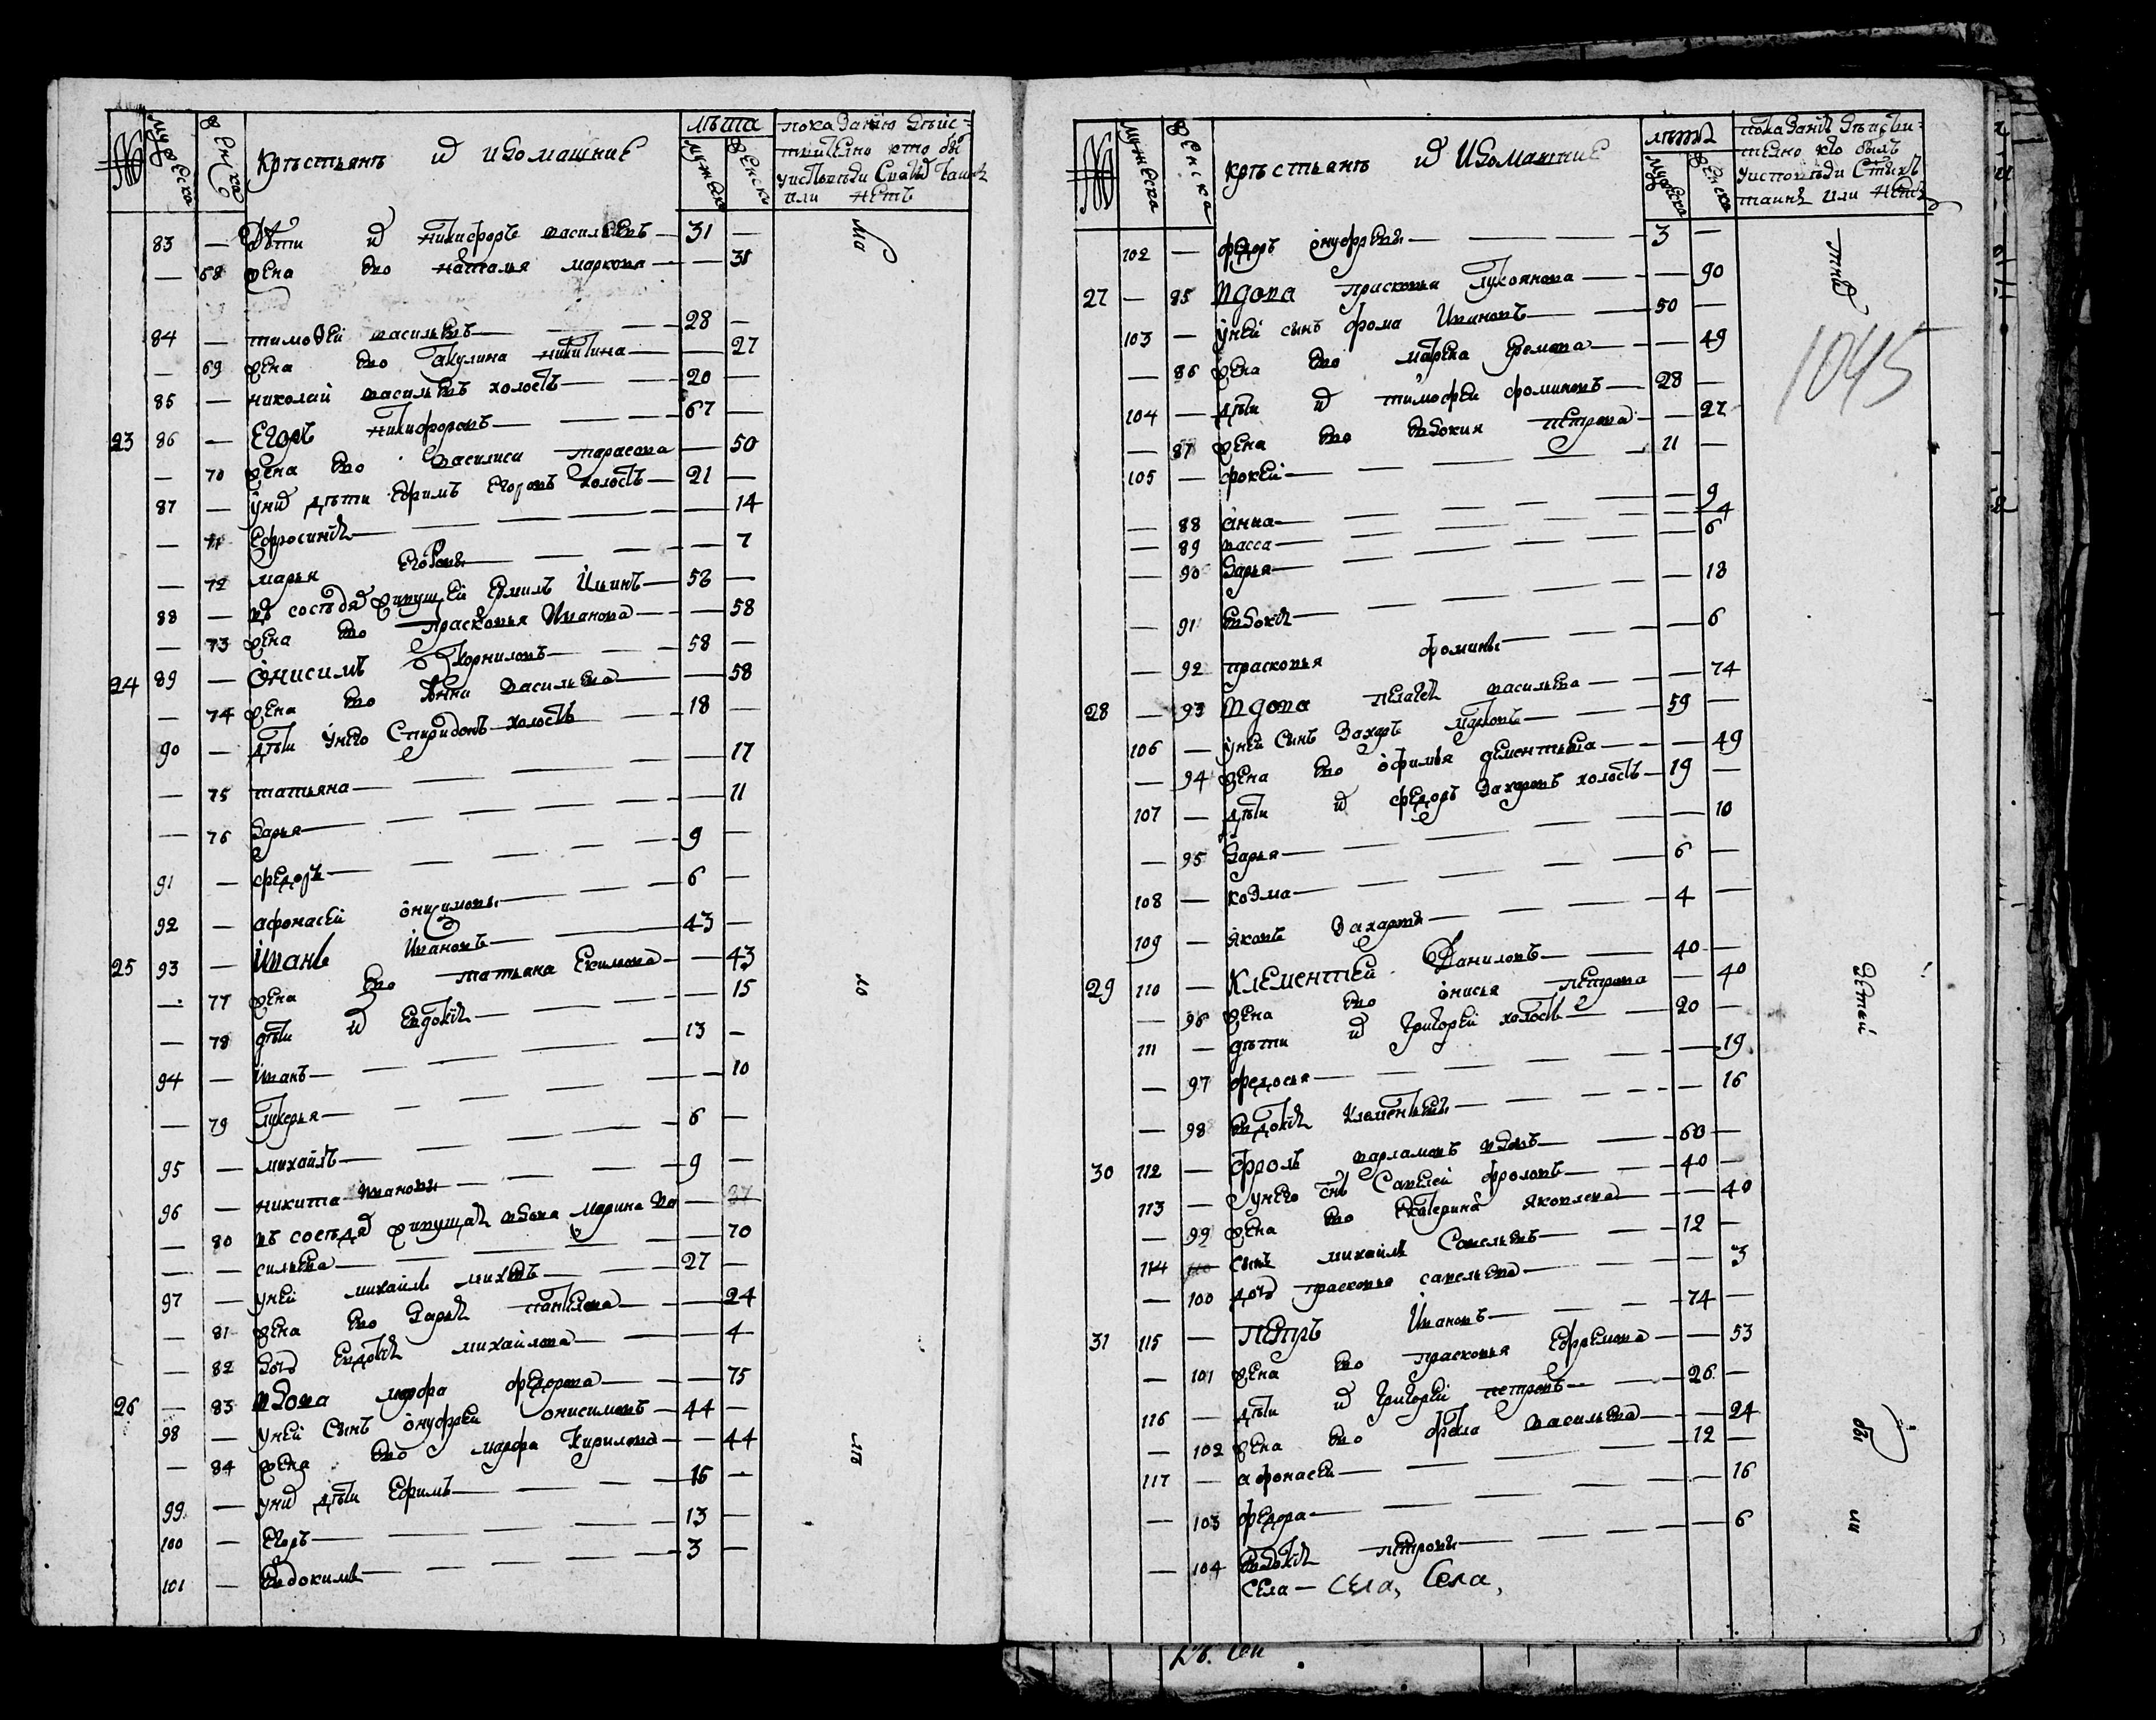 № мужеска женска крестьянъ и ихъ домашние лѣта мужеска женска показанию дѣйствительно кто былъ у исповеди и святыхъ таинъ или нетъ
83 — дѣти ихъ никифоръ васильевъ — 31 —
— 68 жена ево наталья маркова — — 31
84 — тимофей васильевъ — 28 —
— 69 жена ево акулина никитина — — 27
85 — николай васильевъ холостъ — 20 —
23 86 — Егоръ никифоровъ — 67 —
— 70 жена ево василиса тарасова — 50
87 — у нихъ дѣти Ефимъ Егоровъ холостъ — 21 —
— 71 Ефросинья — — 14
— 72 марья Егоровы — — 7
88 — въ соседяхъ живущей Ермилъ Ильинъ — 58 —
— 73 жена ево Прасковья Иванова — — 58
24 89 — Онисимъ Корниловъ — 58 —
— 74 жена ево Анна васильева — — 58
90 — дѣти у него Спиридонъ холостъ — 18 —
— 75 татьяна — — 17
— 76 дарья — — 11
91 — федоръ — 9 —
92 — афонасей онисимовы — 6 —
25 93 — Иванъ Ивановъ — 43 —
— 77 жена ево татьяна Екимова — — 43
— 78 дѣти ихъ Евдокия — — 15
94 — Иванъ — 13 —
— 79 лукерья — — 10
95 — михайлъ — 6 —
96 — никита Ивановы — 9 —
— 80 въ соседяхъ живущая вдова Марина Ва — 37
— — сильева — — 70
97 — у ней михайлъ михеевъ — 27 —
— 81 жена ево дарья — — 24
— 82 дочь Евдокия михайлова — — 4
26 — 83 вдова марфа федорова — — 75
98 — у ней сынъ онуфрей онисимовъ — 44 —
— 84 жена ево марфа Кирилова — — 44
99 — у нихъ дѣти Ефимъ — 16 —
100 — Егоръ — 13 —
101 — Евдокимъ — 3 —
№ мужеска женска крестьянъ и ихъ домашние лѣта мужеска женска показание дѣйствително кто былъ у исповеди и святыхъ таинъ или нетъ
102 — федоръ онуфревы — 3 —
27 — 85 вдова прасковья лукоянова — — 90
103 — у ней сынъ фома Ивановъ — 50 —
— 86 жена ево марѳа Еремова — — 49
104 — дѣти ихъ тимофей фоминовъ — 28 —
— 87 жена ево евдокия петрова — — 27
105 — фокей — 11 —
— 88 анна — — 9
— 89 васса — — 4
— 90 дарья — — 6
— 91 евдокия — — 18
— 92 прасковья фомины — — 6
28 — 93 вдова пелагея васильева — — 74
106 — у ней сынъ Захаръ — 59 —
— 94 жена ево офимья дементьева — — 49
107 — дѣти ихъ федоръ Захаровъ холостъ — 19 —
— 95 дарья — — 10
108 — козма — 6 —
109 — яковъ Захаровы — 4 —
29 110 — Клементей Даниловъ — 40 —
— 96 жена ево онисья петрова — 40
111 — дѣти ихъ григорей холостъ — 20 —
— 97 федосья — — 19
— 98 евдокия клементьевы — — 16
30 112 — Фролъ варламовъ вдовъ — 60 —
113 — у него сынъ Савелей фроловъ — 40 —
— 99 жена ево екатерина яковлева — — 40
114 сынъ михайлъ Савельевъ — 12 —
— 100 дочь прасковья савельева — — 3
31 115 — Петръ Ивановъ — 74 —
— 101 жена ево прасковья Ефремова — — 53
116 — дѣти ихъ григорей петровъ — 26 —
— 102 жена ево васильева — — 24
117 — афонасей — 12 —
— 103 федора — — 16
— 104 евдокия петровы — — 6
Села — села, села,
1045
детей
бы
ли